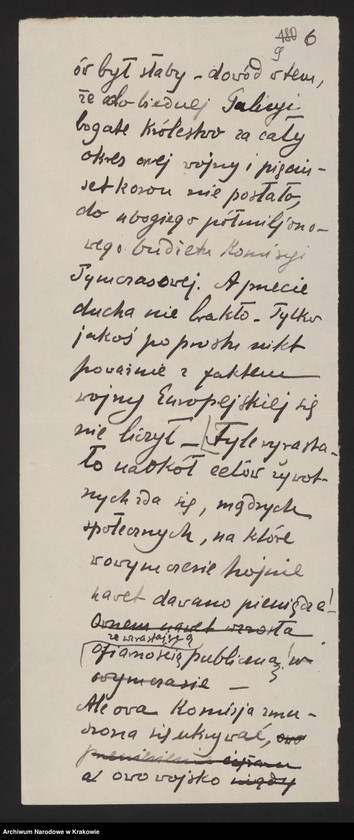 480 6
9
ów był słaby – dowód w tem,
że do biednej Galicyi
bogate Królestwo za cały
okres owej wojny i pięciu-
set koron nie posłało,
do ubogiego półmiljono-
wego budżetu Komisyi
Tymczasowej. A przecie
ducha nie brakło. Tylko
jakoś po prostu nikt
poważnie z faktem
wojny Europejskiej się
nie liczył – Tyle wyrasta-
ło naokół celów żywot-
nych zda się, mądrych
społecznych, na które
wówczesnie hojnie
nawet dawano pieniądze!
nawet wzrosła
ze wzrastającą
ofiarnością publiczną! w
owym czasie –
Ale owa Komisja zmu-
szona się ukrywać, owo
a owo wojsko nigdy
Archiwum Narodowe w Krakowie